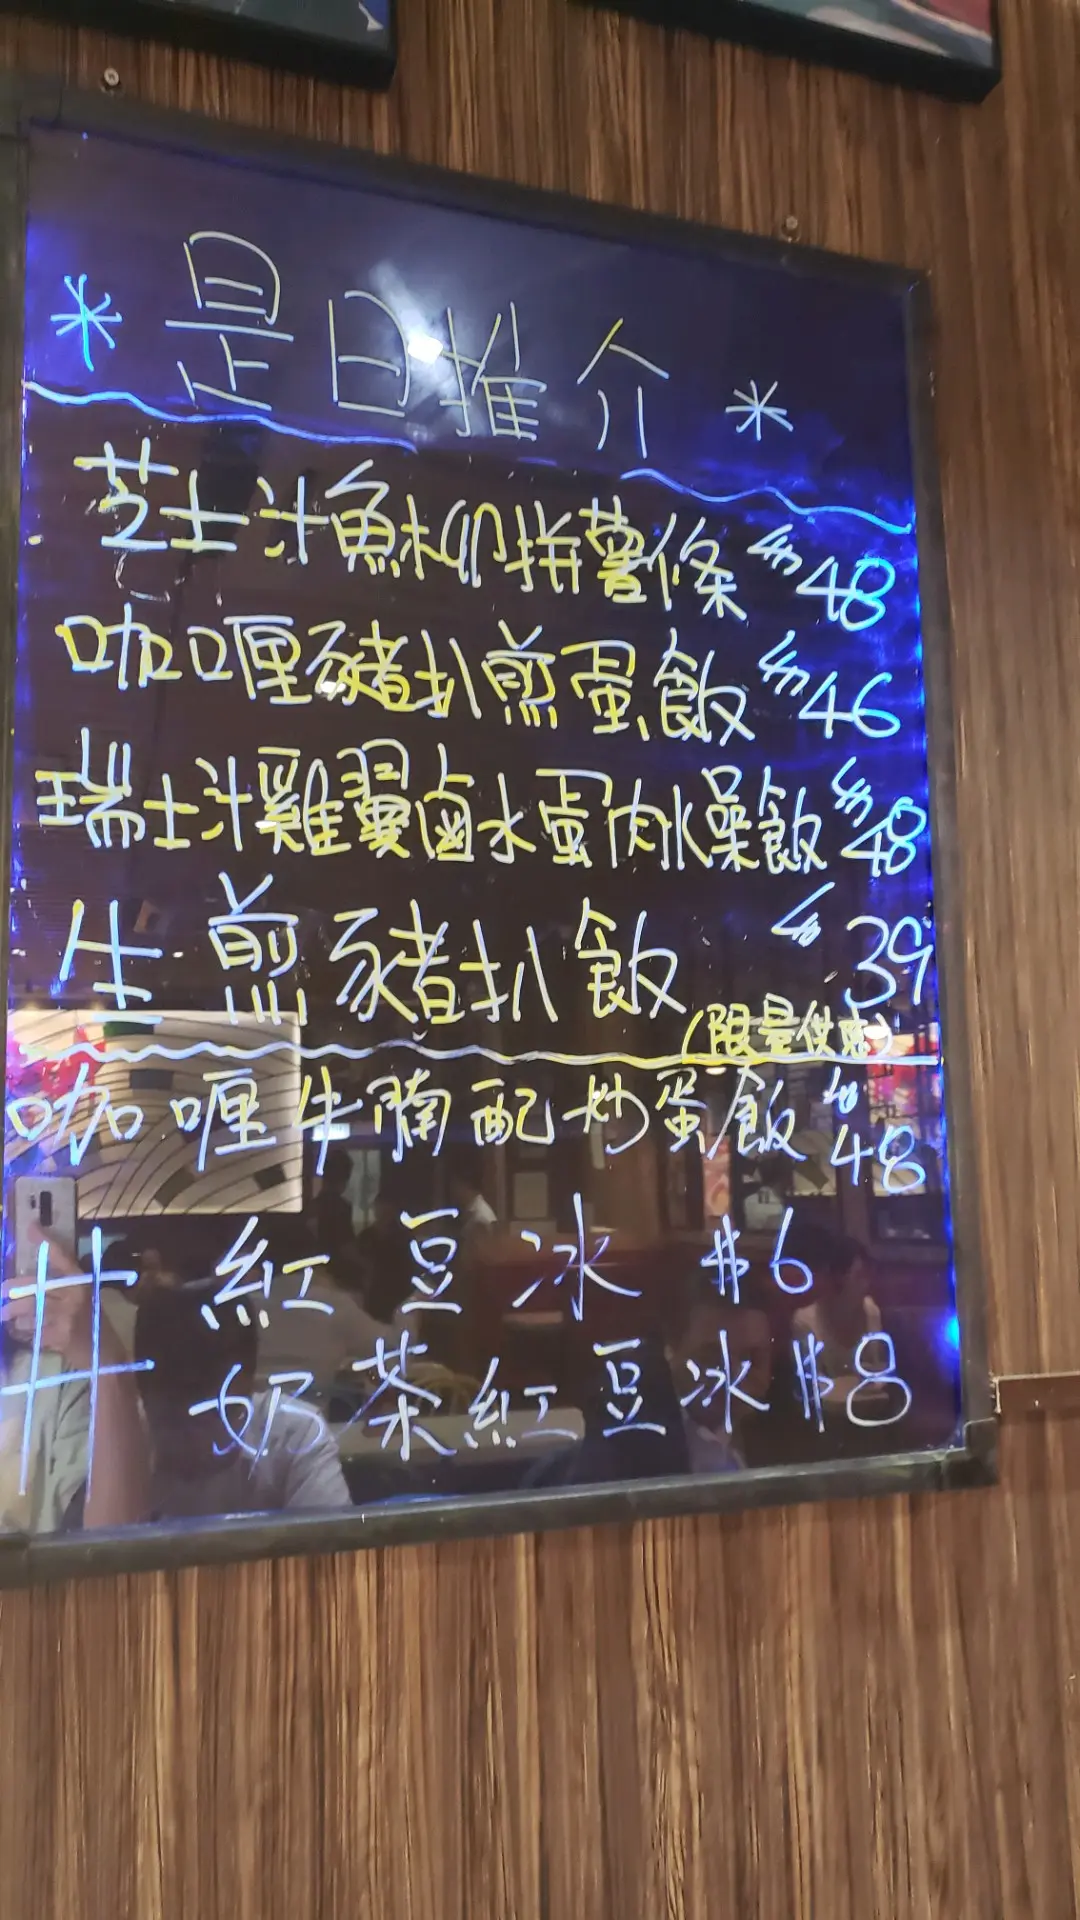 * 是日推介 *
芝士汁魚柳拼薯條 $48
咖喱豬扒煎蛋飯 $46
瑞士汁雞翼鹵水蛋肉燥飯 $48
生煎豬扒飯 $39
(限量供應)
咖喱牛腩配炒蛋飯 $48
# 紅豆冰 $6
奶茶紅豆冰 $8